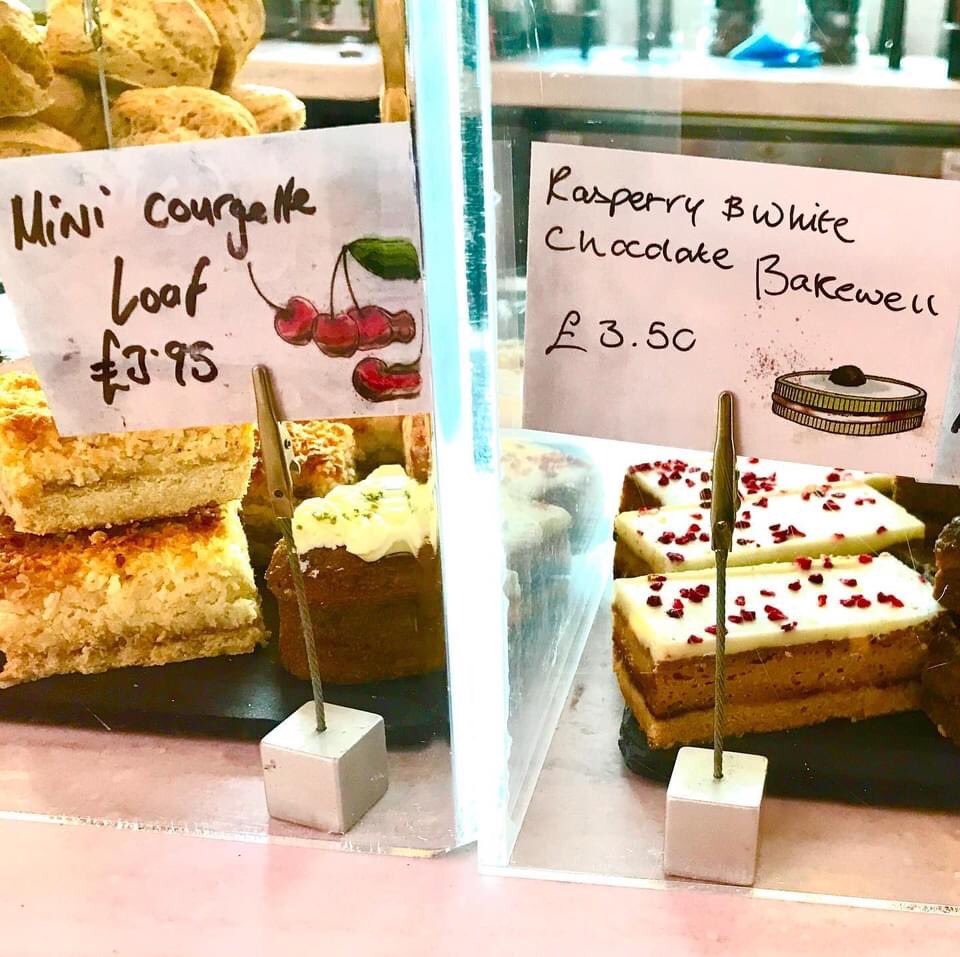 Mini Courgette
Loaf
£3.95
Rasperry & White
Chocolate Bakewell
£3.50